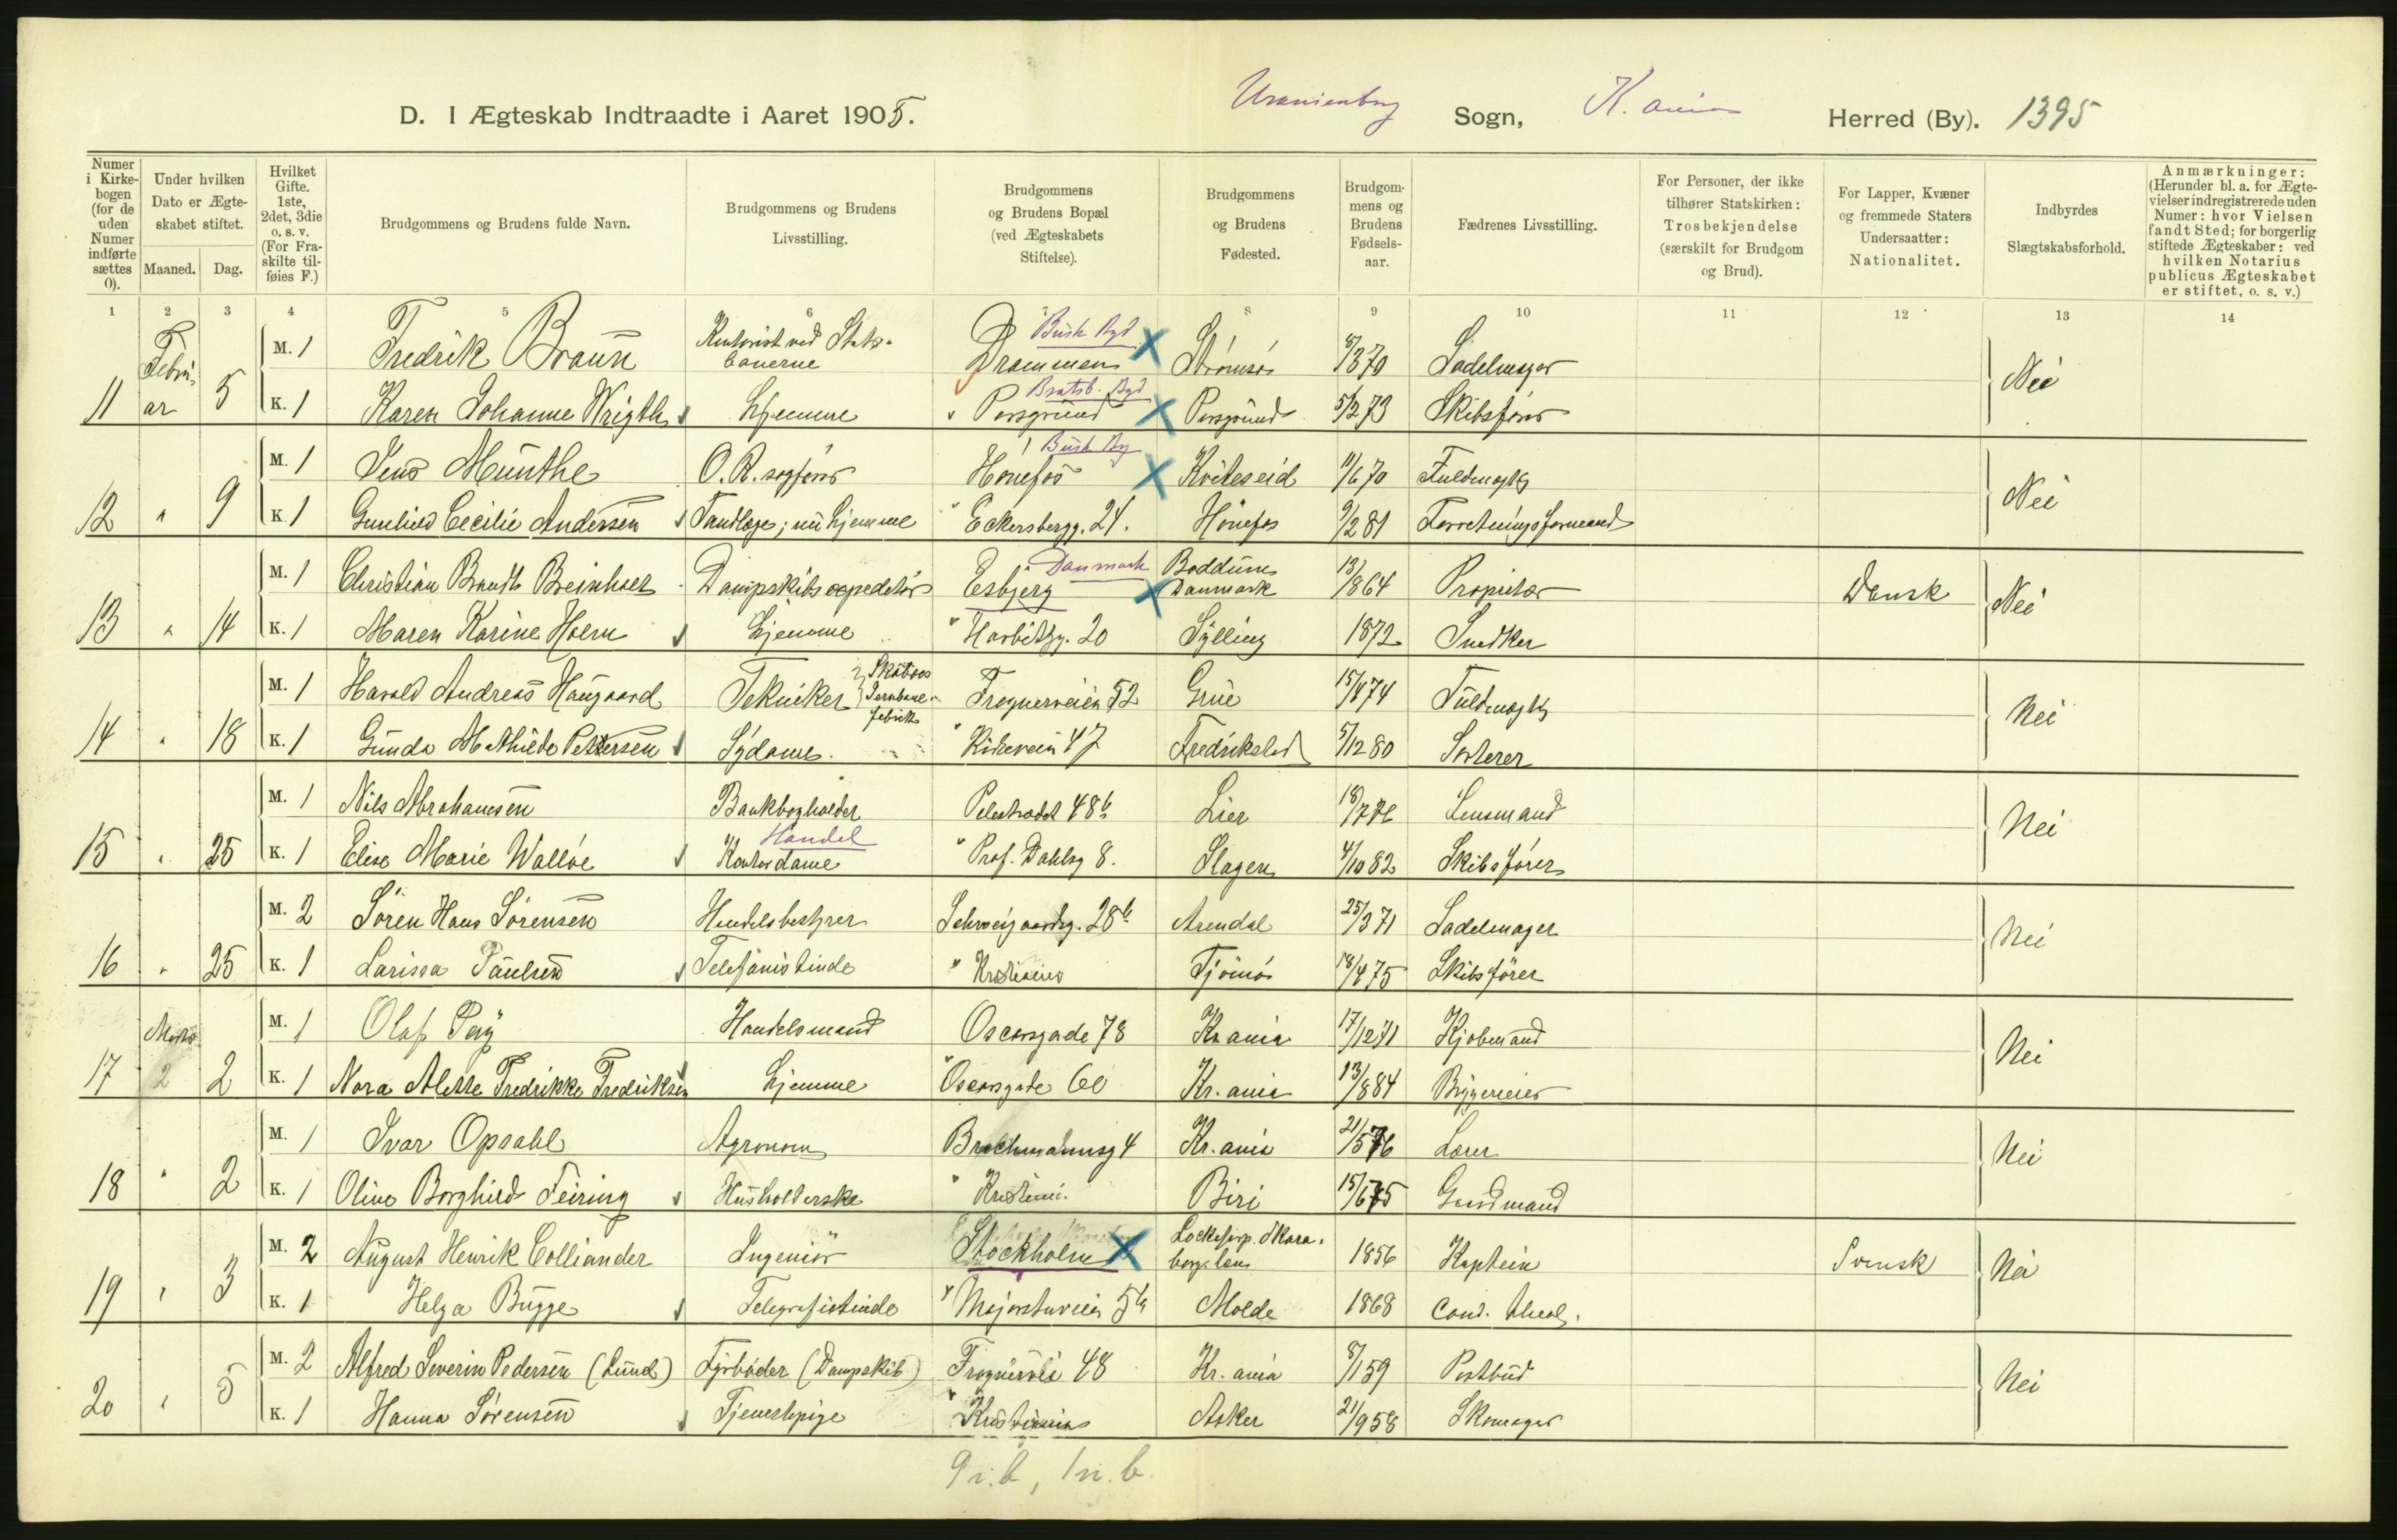 D. I Ægteskab Indtraadte i Aaret 1905.
Uranienborg Sogn, K.ania Herred (By). 1395
Numer i Kirkebogen (for de uden Numer indførte sættes 0).
Under hvilken Dato er Ægteskabet stiftet.
Maaned. Dag.
Hvilket Gifte. 1ste, 2det, 3die o. s. v. (For Fraskilte tilføies F.)
Brudgommens og Brudens fulde Navn.
Brudgommens og Brudens Livsstilling.
Brudgommens og Brudens Bopæl (ved Ægteskabets Stiftelse).
Brudgommens og Brudens Fødested.
Brudgommens og Brudens Fødselsaar.
Fædrenes Livsstilling.
For Personer, der ikke tilhører Statskirken: Trosbekjendelse (særskilt for Brudgom og Brud).
For Lapper, Kvæner og fremmede Staters Undersaatter: Nationalitet.
Indbyrdes Slægtskabsforhold.
Anmærkninger: (Herunder bl. a. for Ægtevielser indregistrerede uden Numer: hvor Vielsen fandt Sted; for borgerlig stiftede Ægteskaber: ved hvilken Notarius publicus Ægteskabet er stiftet, o. s. v.)
1 2 3 4 5 6 8 9 10 11 12 13 14
Februar M. 1 Fredrik Braun Kontorist ved Statsbanerne Busk Byd Drammen X Strømsø 8/3 70 Sadelmager Nei
11 5 K. 1 Karen Johanne Wrigth Hjemme Bratsb. Byd Porsgrund X Porsgrund 5/2 73 Skibsfører
M. 1 Jens Münthe O.R.sagfører Busk By Hønefos X Kviteseid 11/6 70 Fuldmægtig Nei
12 " 9 K 1 Gunhild Cecilie Andersen Tandlæge; nu hjemme Eckersbergg. 24. Hønefos 9/2 81 Forretningsformand
M. 1 Christian Brandt Dampskibsexpeditør Danmark Esbjerg X Boddum Danmark 13/8 64 Propritær Dansk Nei
13 " 14 K. 1 Maren Karine Holm Hjemme Harbitzg. 20 Sylling 1872 Snedker
M. 1 Harald Andreas Haugaard Tekniker Skabos Jernbanefabrik Frognerveien 52 Grue 15/4 74 Fuldmægtig Nei
14 " 18 K. 1 Gunda Mathilde Pettersen Sydame. Kirkevein 47 Fredrikstad 5/12 80 Sorterer
M. 1 Nils Abrahamsen Bankbogholder Pilestrædet 48b Lier 18/7 76 Lensmand Nei
15 " 25 K. 1 Elise Marie Walløe Handel Kontordame Prof. Dahlsg 8. Slagen 4/10 82 Skibsfører
M. 2 Søren Hans Sørensen Handelsbestyrer Schweigaardsg. 28b Arendal 25/3 71 Sadelmager Nei
16 " 25 K. 1 Larissa Paulsen Telefonistinde Kristiania Tjømø 18/4 75 Skibsfører
Marts M. 1 Olaf Handelsmand Oscarsgade 78 Kr.ania 17/12 71 Kjøbmand Nei
17 2 2 K. 1 Nora Alette Fredrikke Fredriksen Hjemme Oscarsgade 60 Kr.ania 13/8 84 Byggereier
M. 1 Ivar Opsahl Agronom Brochmannsg 4 Kr.ania 21/5 76 Lærer Nei
18 " 2 K. 1 Oline Borghild Feiring Husholderske Kristiania Biri 15/6 75 Gaardmand
M. 2 August Henrik Colliander Ingeniør Stockholm X Locketorp. Skaraborgs læns 1856 Kaptein Svensk Nei
19 " 3 K. 1 Helga Bugge Telegrafistinde Majorstuveien 5b Molde 1868 Cand. theol.
M. 2 Alfred Severin Pedersen (Lund) Fyrbøder (Dampskib) Frognervei 48 Kr.ania 8/1 59 Postbud Nei
20 " 5 K. 1 Hanna Sørensen Tjenestepige Kristiania Asker 21/9 58 Skomager
9 i.b, 1 n.b.